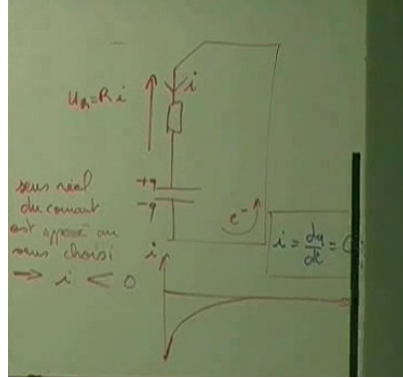 i
U_R = R i
+q
-q
sens réel
du courant
est opposé au
sens choisi
→ i < 0
e⁻
i = dq/dt =
i